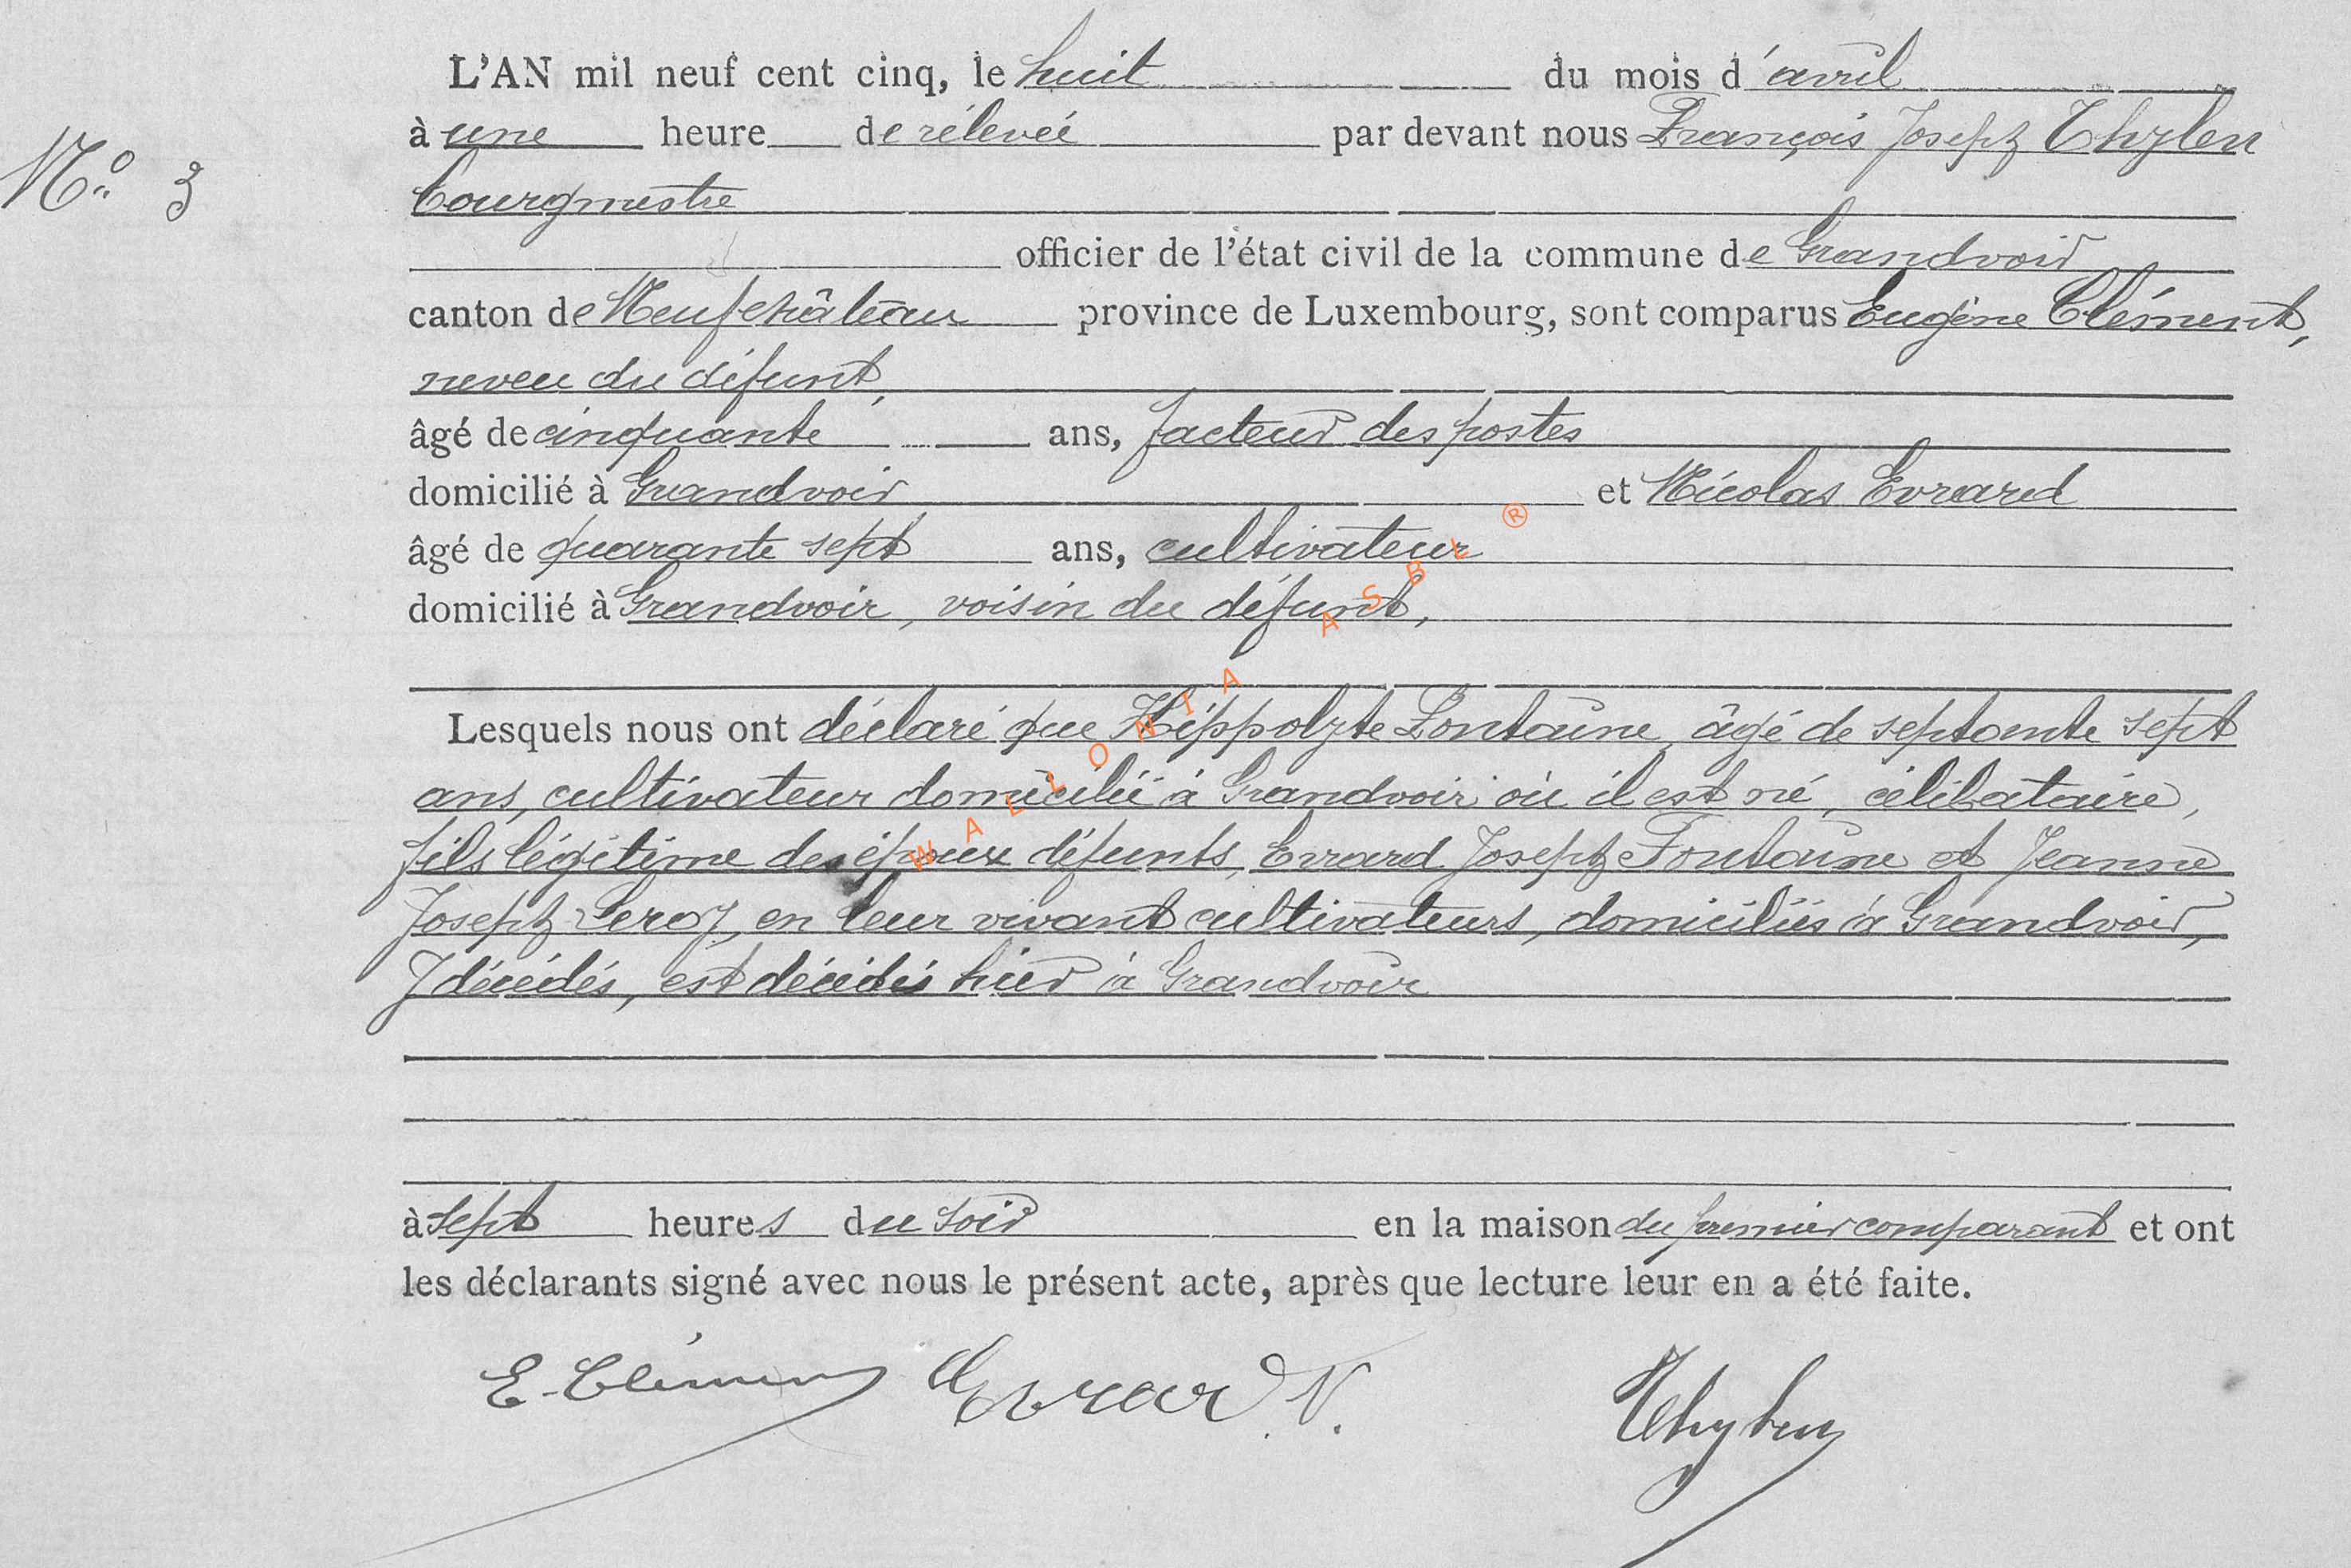 L'AN mil neuf cent cinq, le huit du mois d'avril
à une heure de rélevée par devant nous François Joseph Thylen
N° 3
bourgmestre
officier de l'état civil de la commune de Grandvoir
canton de Neufchâteau province de Luxembourg, sont comparus Eugène Clément,
neveu du défunt,
âgé de cinquante ans, facteur des postes
domicilié à Grandvoir et Nicolas Evrard
âgé de quarante sept ans, cultivateur
domicilié à Grandvoir, voisin du défunt,
Lesquels nous ont déclaré que Hippolyte Fontaine, âgé de septante sept
ans, cultivateur domicilié à Grandvoir où il est né, célibataire,
fils légitime des époux défunts, Evrard Joseph Fontaine et Jeanne
Joseph Leroy, en leur vivant cultivateurs, domiciliés à Grandvoir,
y décédés, est décédés hier à Grandvoir
à sept heures du soir en la maison du premier comparant et ont
les déclarants signé avec nous le présent acte, après que lecture leur en a été faite.
E. Clément Evrard N. Thylen
WALLONIA ASBL ®